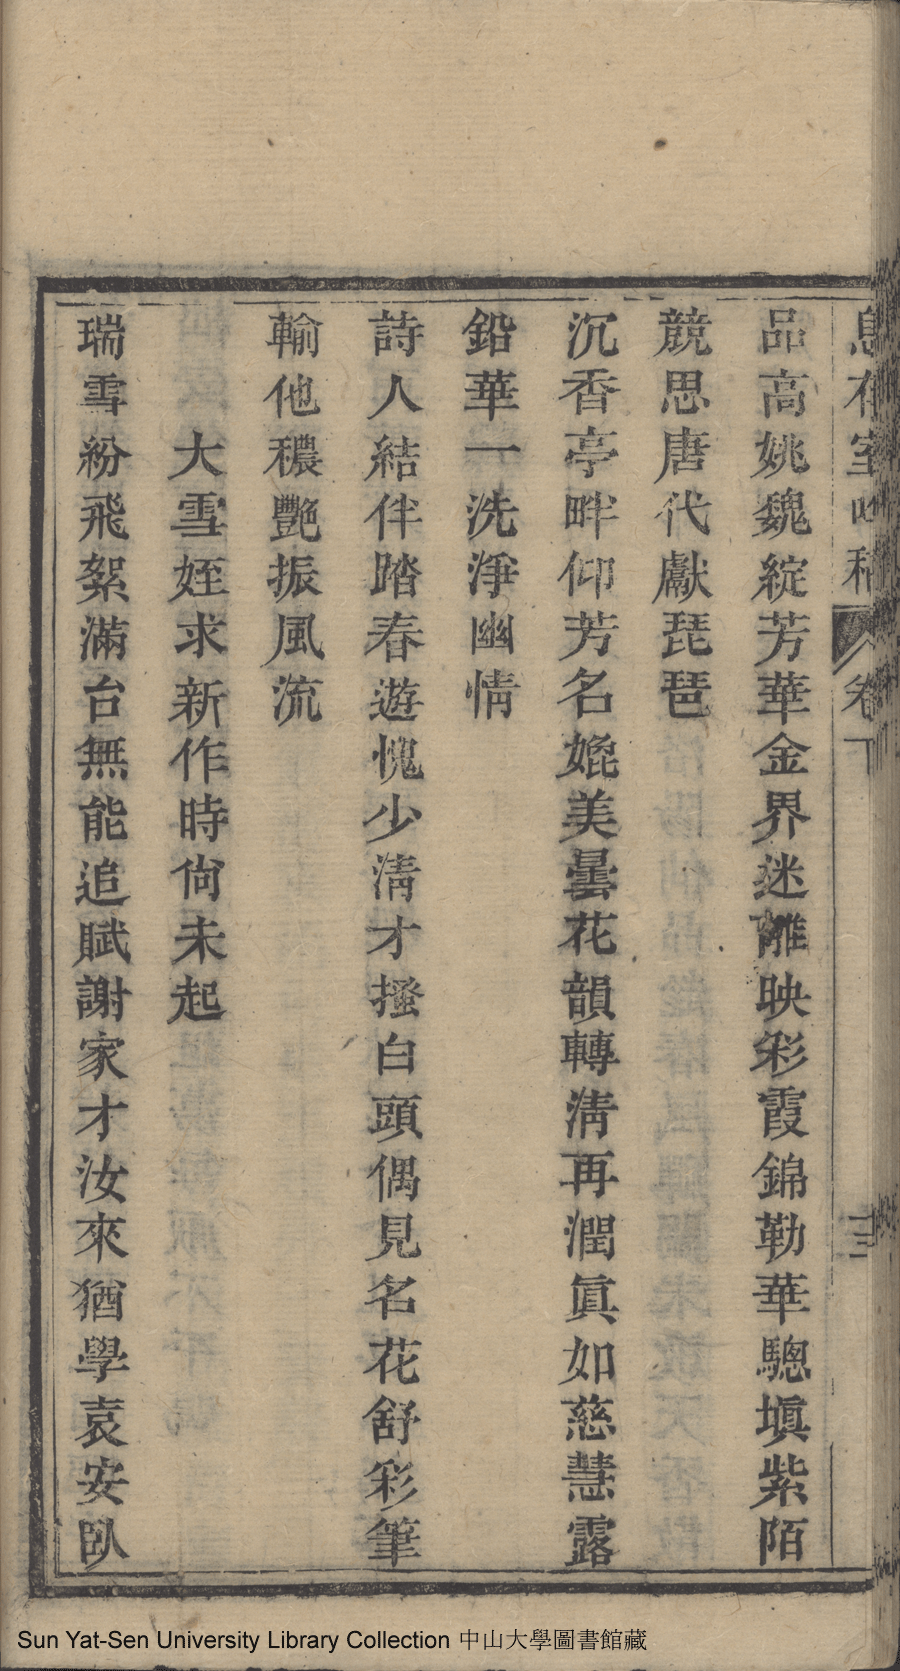 品高姚魏綻芳華金界迷離映彩霞錦勒華驄塡紫陌
競思唐代獻琵琶
沉香亭畔仰芳名媲美曇花韻轉淸再潤眞如慈慧露
鉛華一洗淨幽情
詩人結伴踏春遊愧少淸才搔白頭偶見名花舒彩筆
輸他穠艷振風流
大雪姪求新作時尙未起
瑞雪紛飛絮滿台無能追賦謝家才汝來猶學袁安臥
卷下
Sun Yat-Sen University Library Collection 中山大學圖書館藏